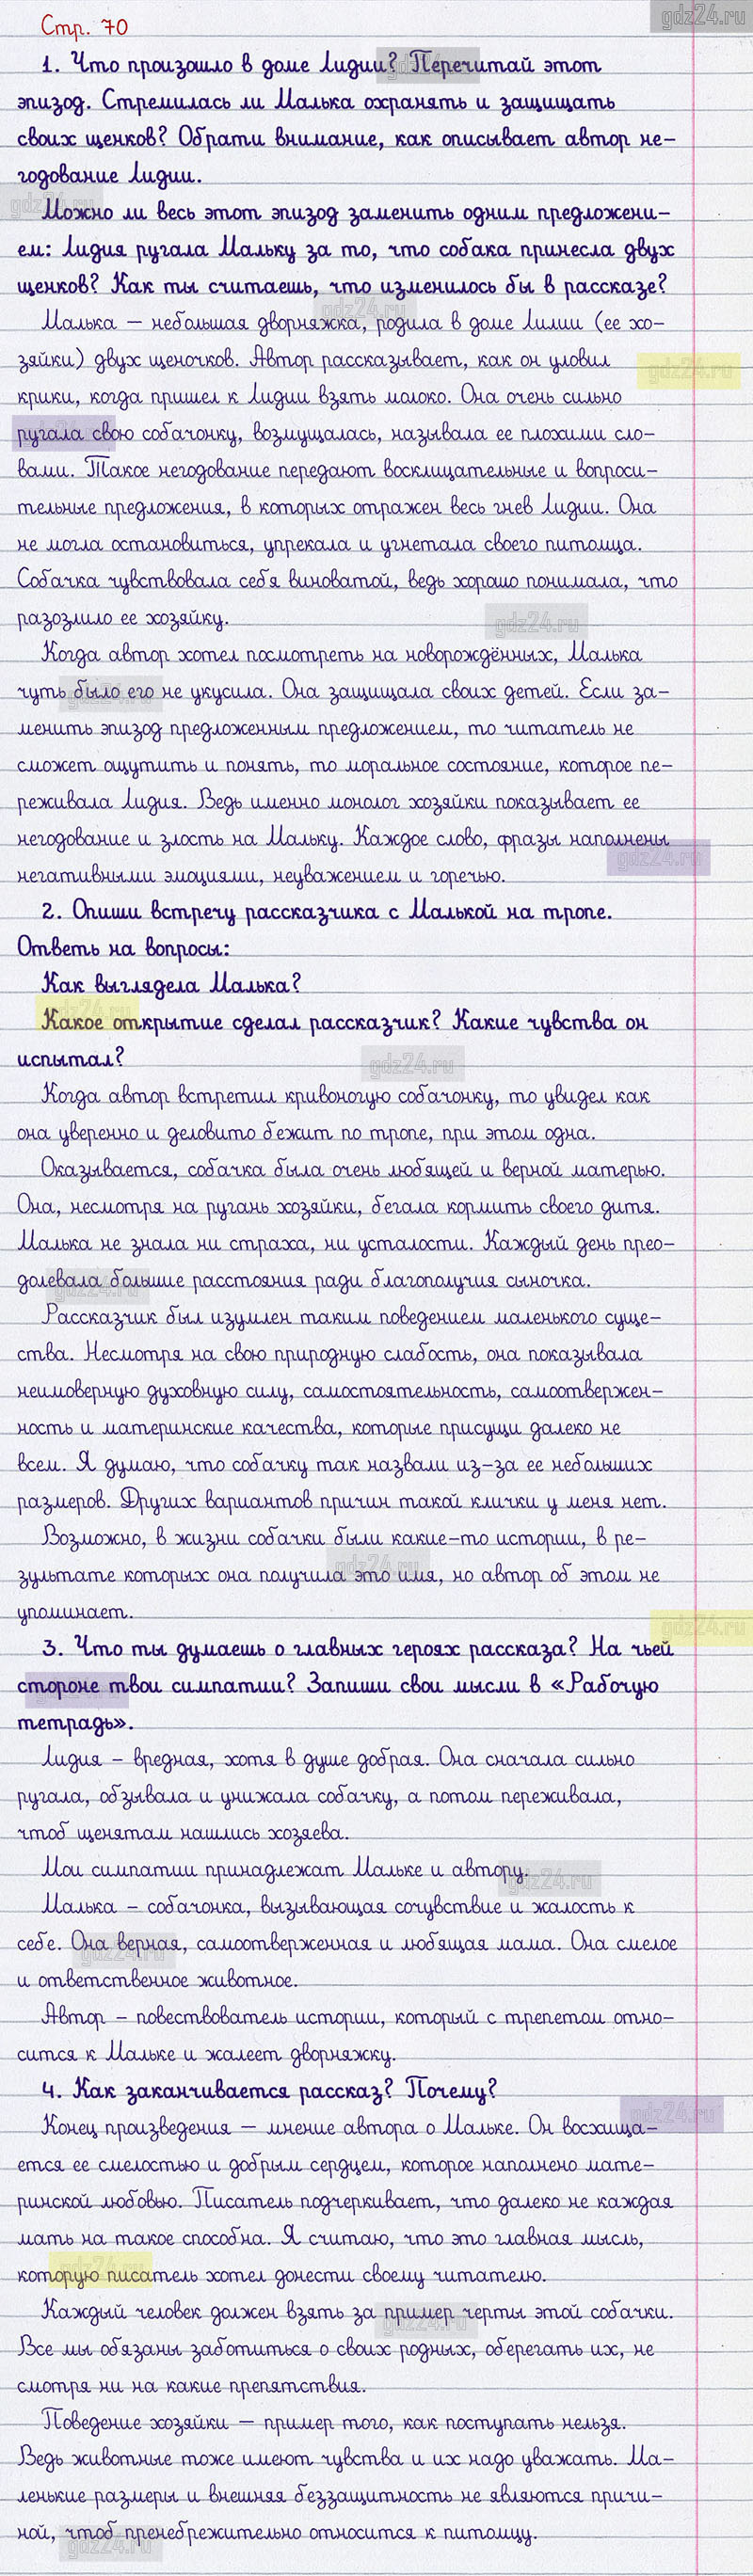 Стр. 70
gdz24.ru
1. Что произошло в доме Лидии? Перечитай этот
эпизод. Стремилась ли Малька охранять и защищать
своих щенков? Обрати внимание, как описывает автор не-
годование Лидии.
Можно ли весь этот эпизод заменить одним предложени-
ем: Лидия ругала Мальку за то, что собака принесла двух
щенков? Как ты считаешь, что изменилось бы в рассказе?
Малька – небольшая дворняжка, родила в доме Лилии (ее хо-
зяйки) двух щеночков. Автор рассказывает, как он уловил
крики, когда пришел к Лидии взять молоко. Она очень сильно
ругала свою собачонку, возмущалась, называла ее плохими сло-
вами. Такое негодование передают восклицательные и вопроси-
тельные предложения, в которых отражен весь гнев Лидии. Она
не могла остановиться, упрекала и угнетала своего питомца.
Собачка чувствовала себя виноватой, ведь хорошо понимала, что
разозлило ее хозяйку.
Когда автор хотел посмотреть на новорождённых, Малька
чуть было его не укусила. Она защищала своих детей. Если за-
менить эпизод предложенным предложением, то читатель не
сможет ощутить и понять, то моральное состояние, которое пе-
реживала Лидия. Ведь именно монолог хозяйки показывает ее
негодование и злость на Мальку. Каждое слово, фразы наполнены
негативными эмоциями, неуважением и горечью.
2. Опиши встречу рассказчика с Малькой на тропе.
Ответь на вопросы:
Как выглядела Малька?
Какое открытие сделал рассказчик? Какие чувства он
испытал?
Когда автор встретил кривоногую собачонку, то увидел как
она уверенно и деловито бежит по тропе, при этом одна.
Оказывается, собачка была очень любящей и верной матерью.
Она, несмотря на ругань хозяйки, бегала кормить своего дитя.
Малька не знала ни страха, ни усталости. Каждый день прео-
долевала большие расстояния ради благополучия сыночка.
Рассказчик был изумлен таким поведением маленького суще-
ства. Несмотря на свою природную слабость, она показывала
неимоверную духовную силу, самостоятельность, самоотвержен-
ность и материнские качества, которые присущи далеко не
всем. Я думаю, что собачку так назвали из-за ее небольших
размеров. Других вариантов причин такой клички у меня нет.
Возможно, в жизни собачки были какие-то истории, в ре-
зультате которых она получила это имя, но автор об этом не
упоминает.
3. Что ты думаешь о главных героях рассказа? На чьей
стороне твои симпатии? Запиши свои мысли в «Рабочую
тетрадь».
Лидия – вредная, хотя в душе добрая. Она сначала сильно
ругала, обзывала и унижала собачку, а потом переживала,
чтоб щенятам нашлись хозяева.
Мои симпатии принадлежат Мальке и автору.
Малька – собачонка, вызывающая сочувствие и жалость к
себе. Она верная, самоотверженная и любящая мама. Она смелое
и ответственное животное.
Автор – повествователь истории, который с трепетом отно-
сится к Мальке и жалеет дворняжку.
4. Как заканчивается рассказ? Почему?
Конец произведения – мнение автора о Мальке. Он восхища-
ется ее смелостью и добрым сердцем, которое наполнено мате-
ринской любовью. Писатель подчеркивает, что далеко не каждая
мать на такое способна. Я считаю, что это главная мысль,
которую писатель хотел донести своему читателю.
Каждый человек должен взять за пример черты этой собачки.
Все мы обязаны заботиться о своих родных, оберегать их, не
смотря ни на какие препятствия.
Поведение хозяйки – пример того, как поступать нельзя.
Ведь животные тоже имеют чувства и их надо уважать. Ма-
ленькие размеры и внешняя беззащитность не являются причи-
ной, чтоб пренебрежительно относится к питомцу.